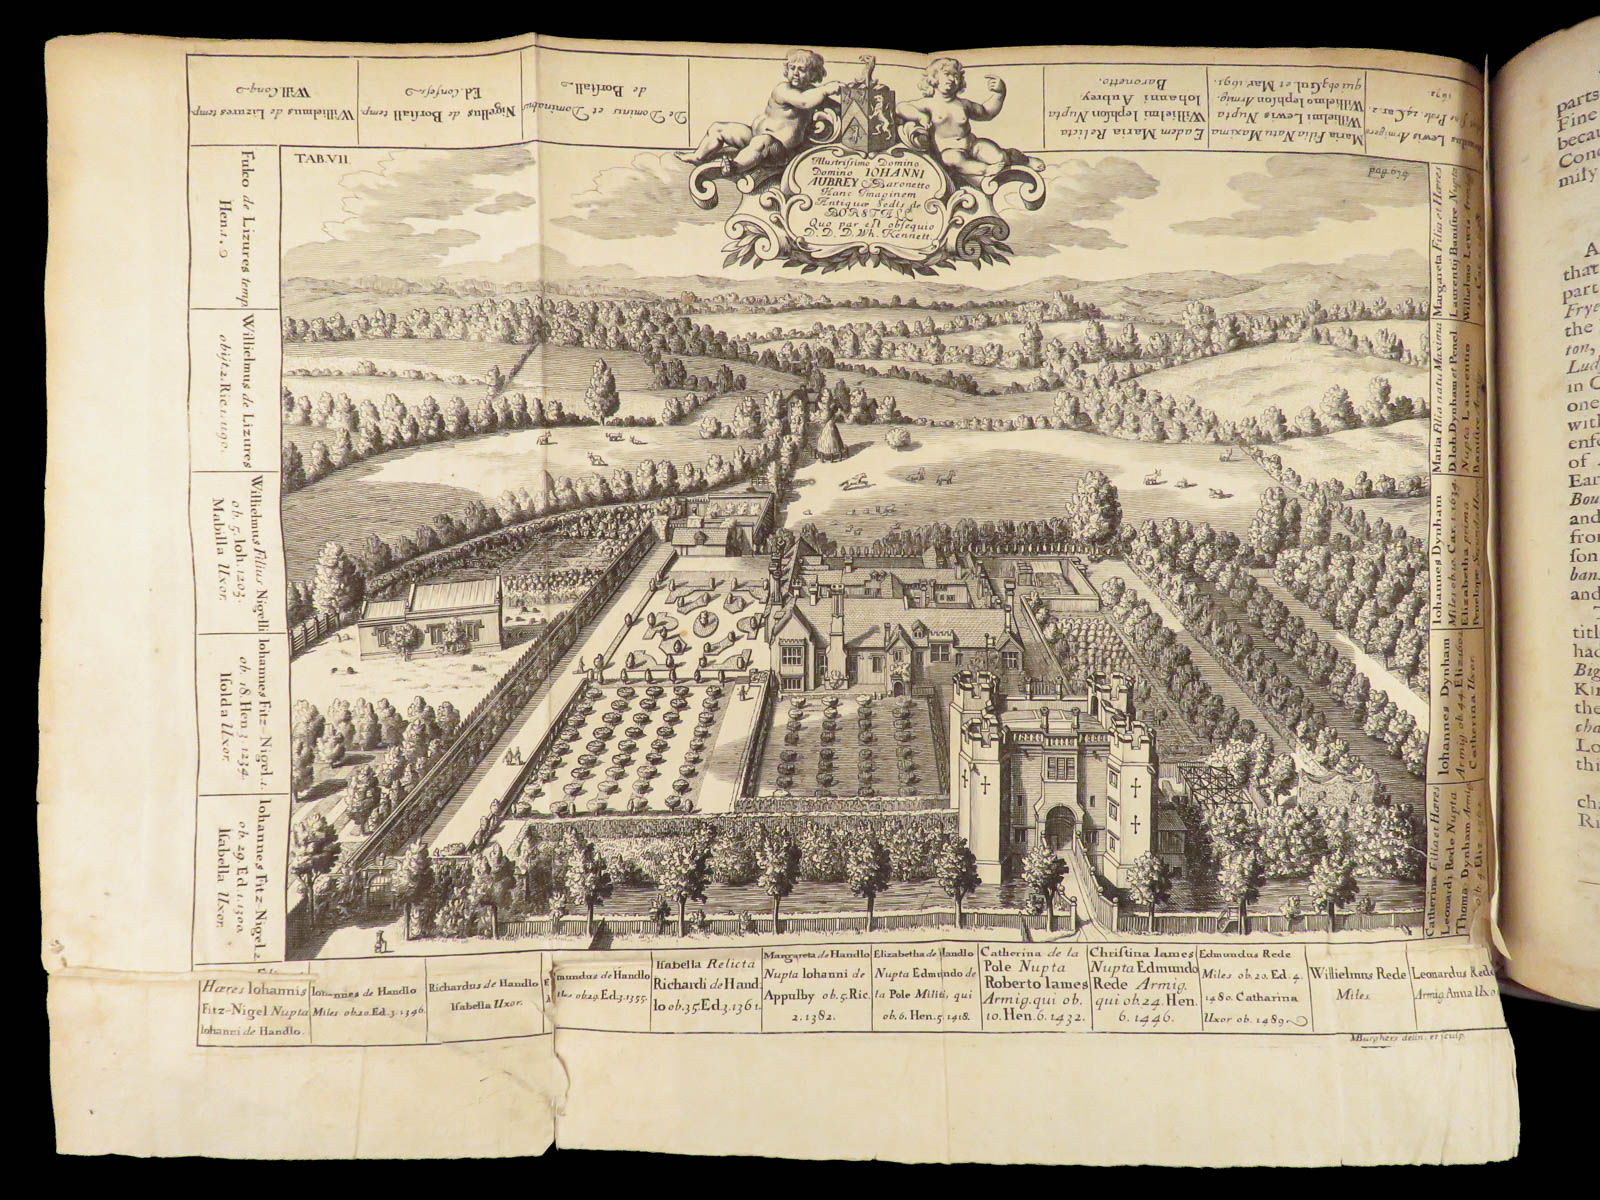 TAB.VII
Illustrissimo Domino
Domino IOHANNI
AUBREY Baronetto
Hanc Imaginem
Antiquæ Sedis de
BORSTALL
Quo par est obsequio
D. D. D. Wh. Kennett.
De Dominis et Dominabus
de Borstall
Nigellus de Borstall temp.
Ed. Confess.
Willielmus de Lizures temp.
Will Conq
Fulco de Lizures temp
Hen. 1.
Willielmus de Lizures
obijt 2. Ric. 1. 1190.
Willielmus Filius Nigelli
ob. 5. Ioh. 1203.
Mabilla Uxor.
Iohannes Fitz-Nigel 1.
ob. 18. Hen. 3. 1234.
Isolda Uxor.
Iohannes Fitz-Nigel 2.
ob. 29. Ed. 1. 1300.
Isabella Uxor.
Hæres Iohannis
Fitz-Nigel Nupta
Iohanni de Handlo.
Iohannes de Handlo
Miles ob. 20. Ed. 3. 1346.
Richardus de Handlo
Isabella Uxor.
mundus de Handlo
ob. 29. Ed. 3. 1355.
Isabella Relicta
Richardi de Hand-
lo ob. 35. Ed. 3. 1361.
Margareta de Handlo
Nupta Iohanni de
Appulby ob. 5. Ric.
2. 1382.
Elizabetha de Handlo
Nupta Edmundo de
la Pole Militi, qui
ob. 6. Hen. 5. 1418.
Catherina de la
Pole Nupta
Roberto Iames
Armig. qui ob.
10. Hen. 6. 1432.
Christina Iames
Nupta Edmundo
Rede Armig.
qui ob. 24. Hen.
6. 1446.
Edmundus Rede
Miles ob. 20. Ed. 4.
1480. Catharina
Uxor ob. 1489
Willielmus Rede
Miles.
Leonardus Rede
Armig. Anna Uxo
Catherina Filia et Hæres
Leonardi Rede Nupta
Thomæ Dynham Armig
ob. 4. Eliz. 1562
Iohannes Dynham
Armig. ob. 44. Eliz. 1602
Catherina Uxor.
Iohannes Dynham
Miles ob. 10. Car. 1. 1634.
Elizabetha prima
Penelope Secunda Uxor
Maria Filia natu Maxima
D. Ioh. Dynham et Penel
Nupta Laurentio
Banistre Armig
Margareta Filia et Hæres
Laurentij Banistre Nupta
Willielmo Lewis Armig
Maria Filia Natu Maxima
Willielmi Lewis Nupta
Willielmo Iephson Armig.
qui ob. 3. Gul. et Mar. 1691.
Eadem Maria Relicta
Willielmi Iephson Nupta
Iohanni Aubrey.
Baronetto.
MBurghers delin. et sculp.
parts
Fine
becau
Conc
mily
A
that
part
Frye
the
ton,
Lud
in C
one
with
enfe
of
Ear
Bou
and
fro
son
ban
and
titl
had
Big
Kin
the
cha
Lo
thi
cha
Ri